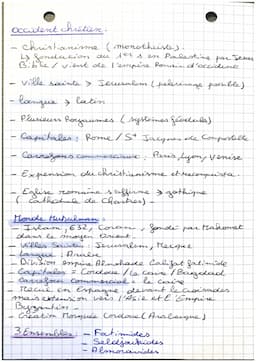 occident chrétien.
- christianisme (monothéiste).
↳ fondation au 1er s en Palestine par Jesus
Bible / vient de l'empire Romain d'occident
- ville sainte > Jerusalem (pelerinage possible)
- langue > latin
- Plusieurs Royaumes (systèmes féodale)
- Capitales : Rome / St Jacques de Compostelle
- Carrefours commerciaux : Paris, Lyon, Venise
- Expension du christianisme et reconquista.
- Eglise romaine s'affirme > gothique
( Cathédrale de Chartres) -
Monde Musulman
- Islam, 632, Coran, fondé par Mahomet
dans le moyen orient.
- Villes Saintes : Jerusalem, Mecque
- Langue : Arabe
- Division empire Almohade Califat fatimide
- Capitales = Cordoue / le Caire / Bagdad
- Carrefour commercial = le Caire
- Recul en Espagne, devant les croisades
mais extension vers l'Asie et l'Empire
Byzantin -
- Création Mosquée Cordoue (Arabesques)
3 Ensembles : - Fatimides
- Seldjoukides
- Almoravides